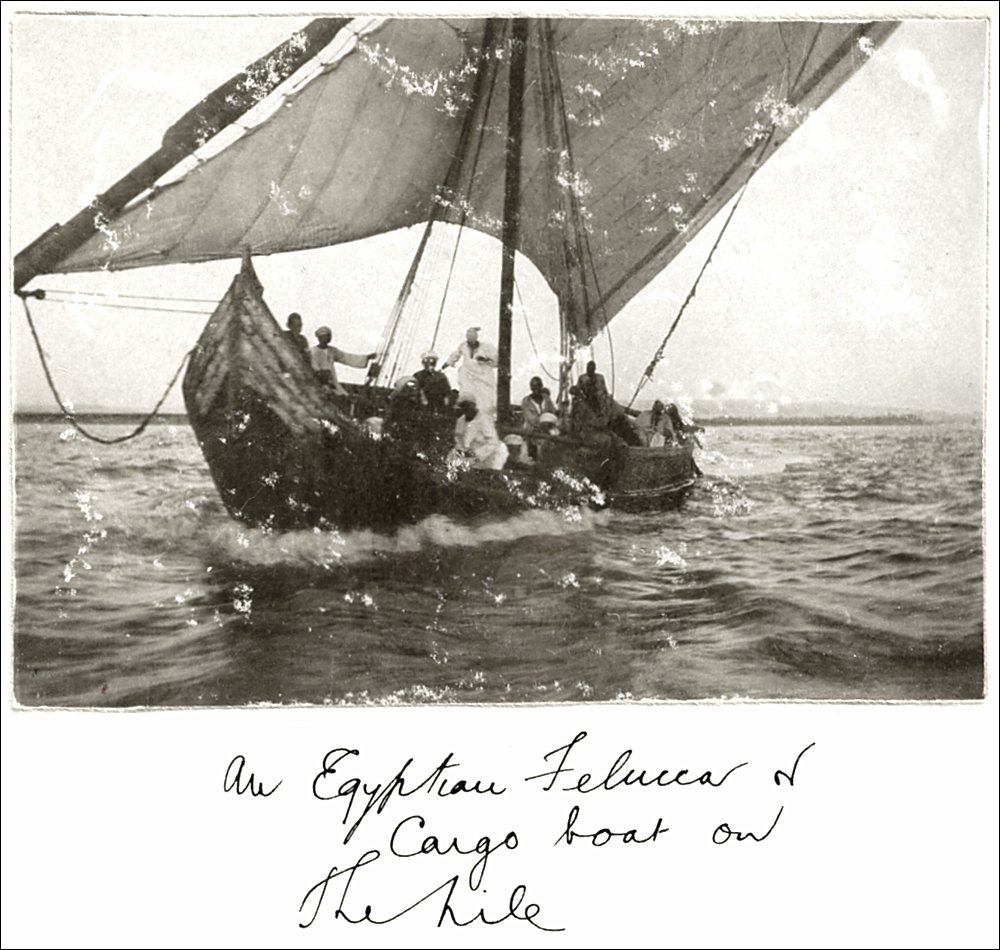 An Egyptian Felucca or
Cargo boat on
The Nile